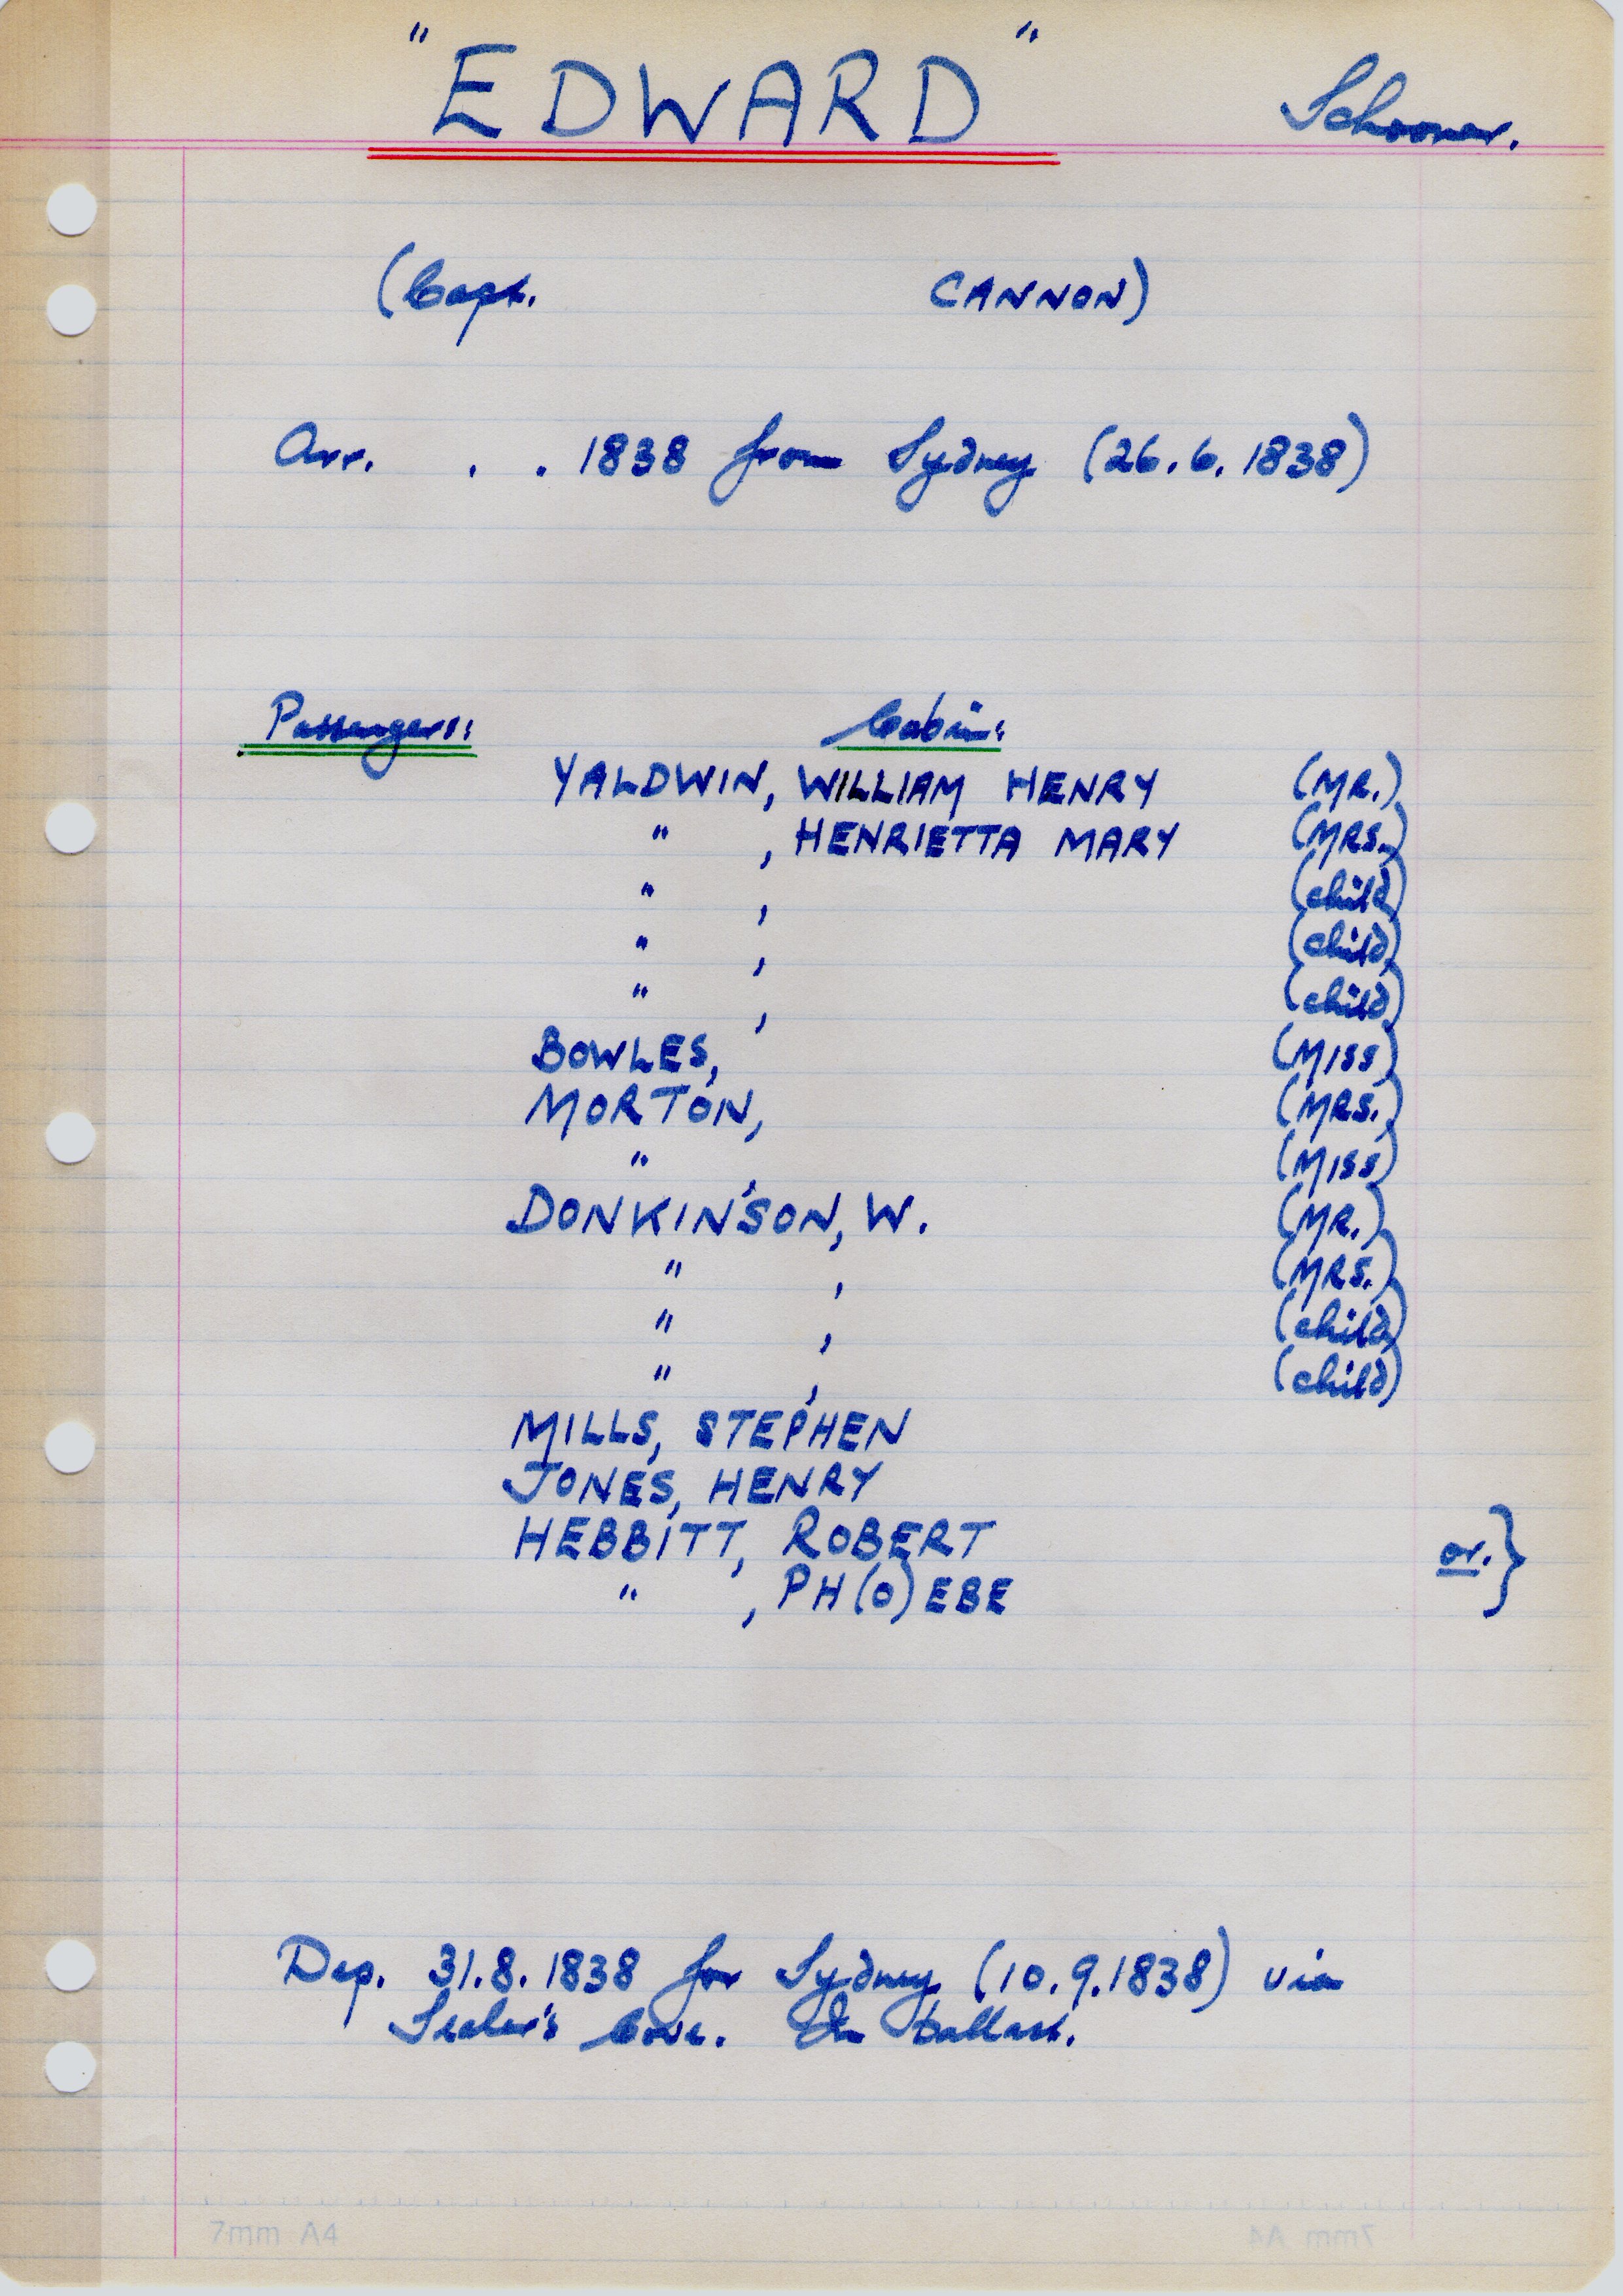 "EDWARD" Schooner.
(Capt. CANNON)
Arr. . . 1838 from Sydney (26.6.1838)
Passengers: Cabin:
YALDWIN, WILLIAM HENRY (MR.)
" , HENRIETTA MARY (MRS.)
" , (child)
" , (child)
" , (child)
BOWLES, (MISS)
MORTON, (MRS.)
" , (MISS)
DONKINSON, W. (MR.)
" , (MRS.)
" , (child)
" , (child)
MILLS, STEPHEN
JONES, HENRY
HEBBITT, ROBERT or.}
" , PH(O)EBE
Dep. 31.8.1838 for Sydney (10.9.1838) via
Sealer's Cove. In ballast.
7mm A4 7mm A4